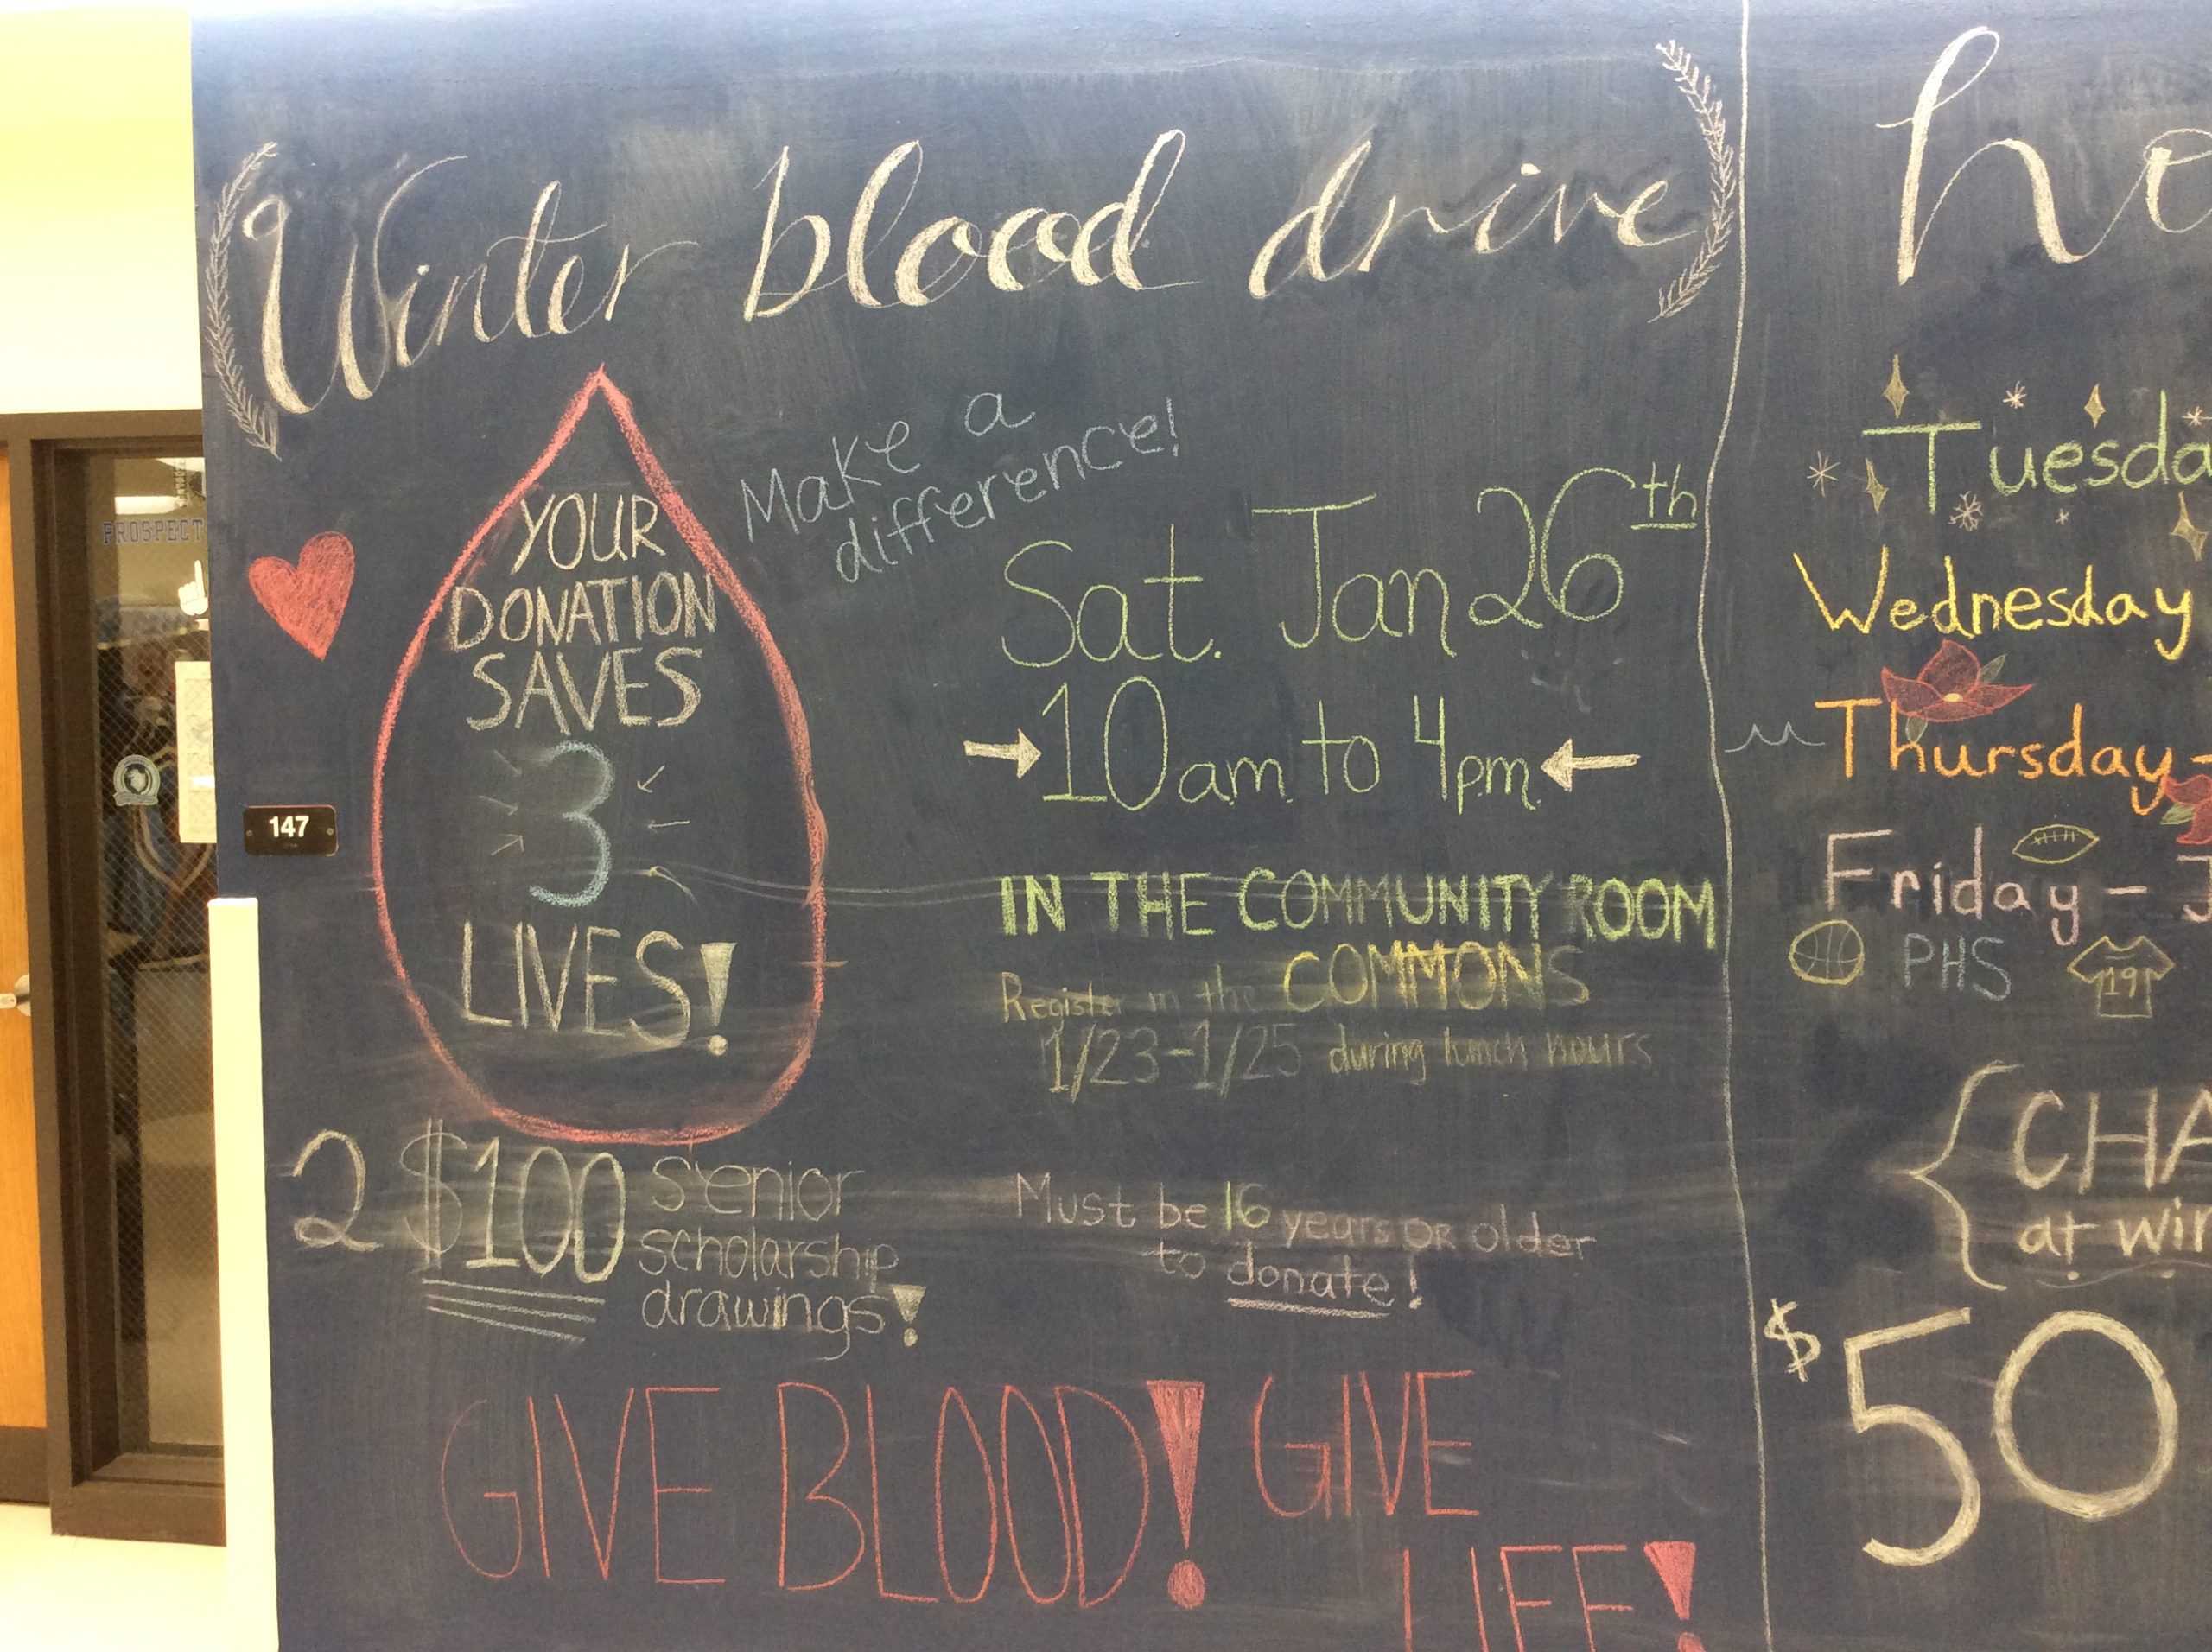 Winter blood drive
Make a
difference!
YOUR
DONATION
SAVES
3
LIVES!
Sat. Jan 26th
10 am to 4pm
IN THE COMMUNITY ROOM
Register in the COMMONS
1/23-1/25 during lunch hours
2 $100 senior
scholarship
drawings!
Must be 16 years or older
to donate!
GIVE BLOOD! GIVE
LIFE!
147
PROSPECT
ho
Tuesda
Wednesday
Thursday-
Friday - J
PHS
19
CHA
at win
$50